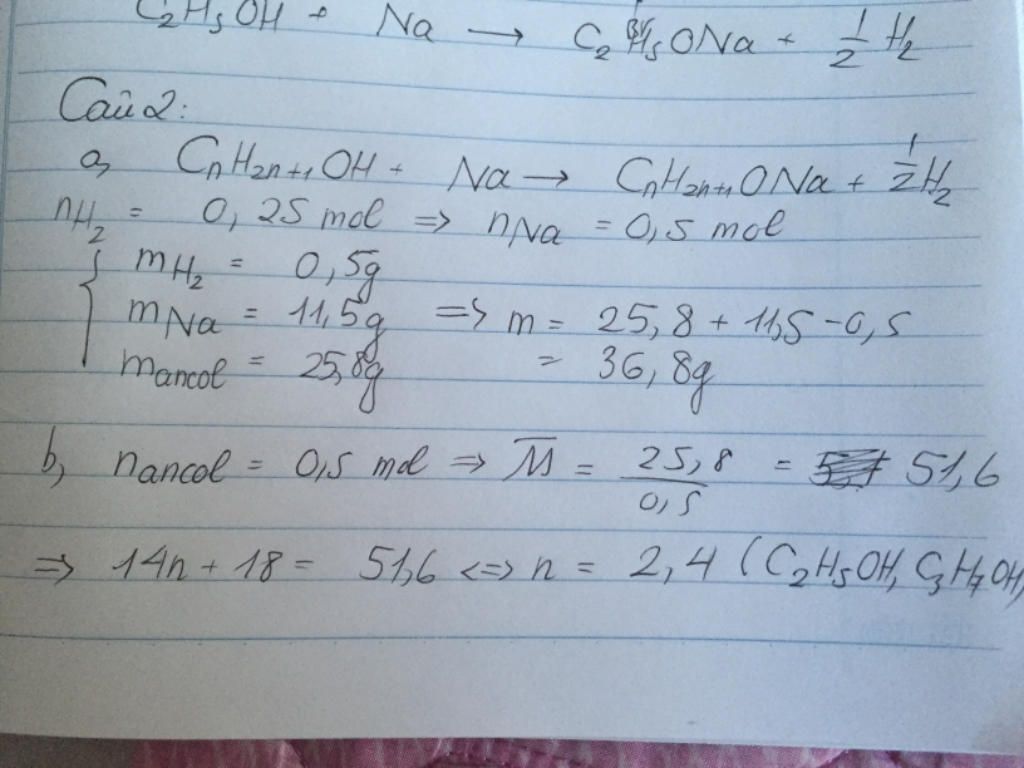 C₂H₅OH + Na → C₂H₅ONa + 1/2 H₂
Câu 2:
a, CₙH₂ₙ₊₁OH + Na → CₙH₂ₙ₊₁ONa + 1/2 H₂
nH₂ = 0,25 mol => nNa = 0,5 mol
{ mH₂ = 0,5g
mNa = 11,5g => m = 25,8 + 11,5 - 0,5
mancol = 25,8g = 36,8g
b, nancol = 0,5 mol => M̅ = 25,8/0,5 = 51,6
=> 14n + 18 = 51,6 <=> n = 2,4 (C₂H₅OH, C₃H₇OH)